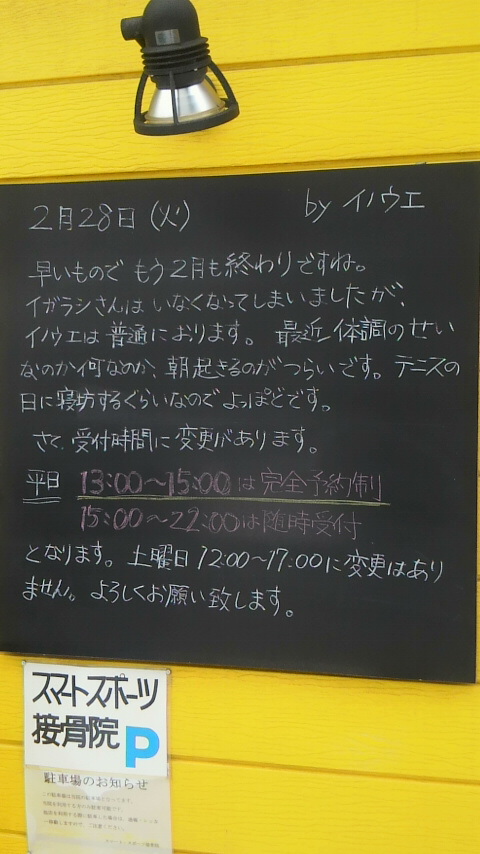 2月28日(火) by イノウエ
早いもので もう2月も終わりですね。
イガラシさんは いなくなってしまいましたが、
イノウエは普通におります。 最近 体調のせい
なのか何なのか、朝起きるのがつらいです。テニスの
日に寝坊するぐらいなので よっぽどです。
さて、受付時間に変更があります。
平日 13:00〜15:00は完全予約制
15:00〜22:00は随時受付
となります。土曜日12:00〜17:00に変更はあり
ません。よろしくお願い致します。
スマートスポーツ
接骨院 P
駐車場のお知らせ